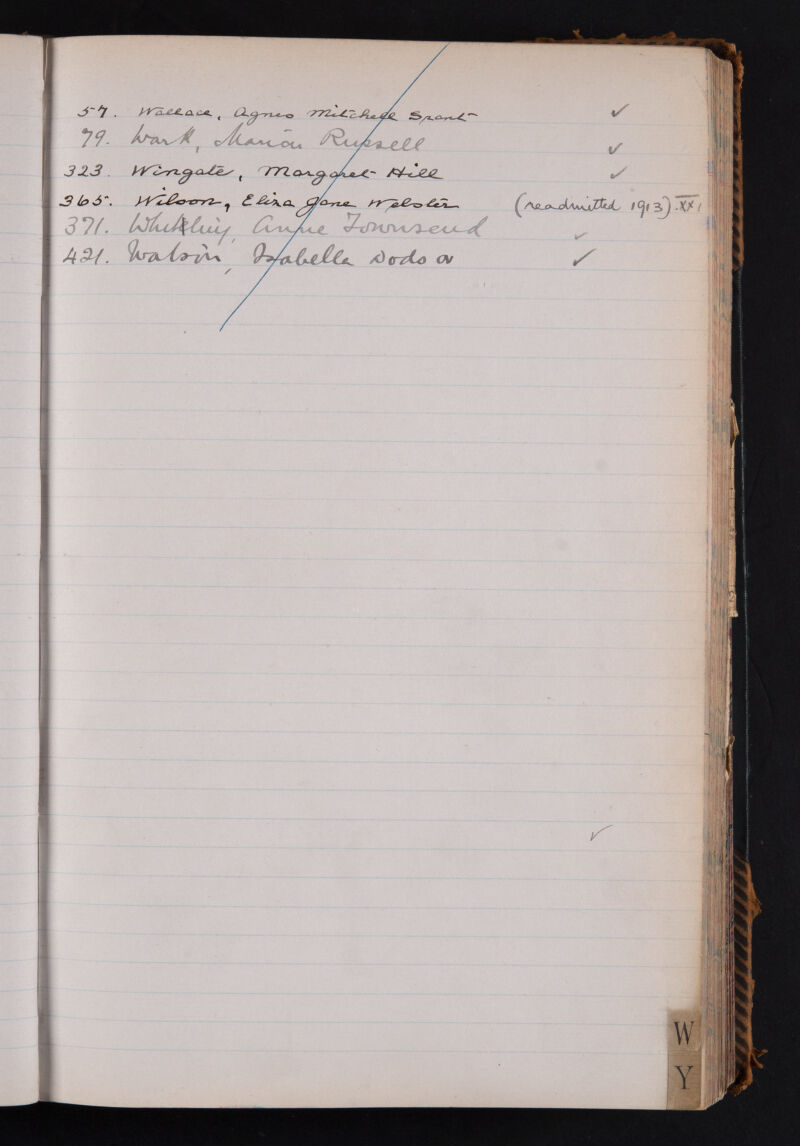 57. Wallace, Agnes Mitchell Spent ✓
79. Wark, Marion Russell ✓
323. Wingate, Margaret Hill ✓
365. Wilson, Eliza Jane Webster (readmitted 1913). XXI
371. Anne Townsend ✓
421. Watson, Isabella Dodson ✓
✓
W
Y